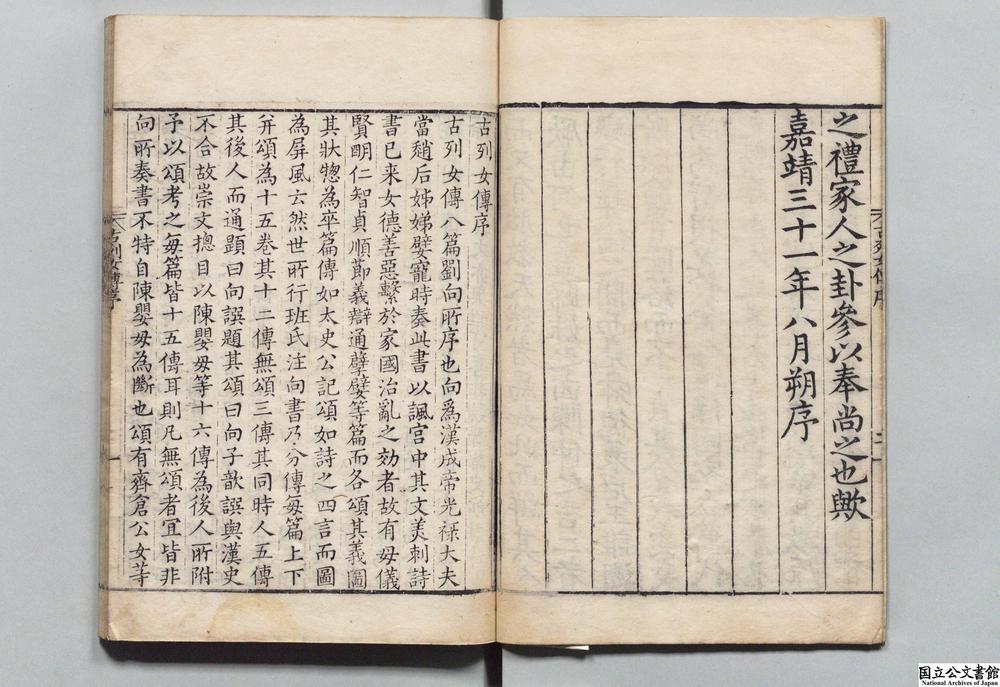 之禮家人之卦參以奉尚之也歟
嘉靖三十一年八月朔序
古列女傳序
古列女傳序
古列女傳八篇劉向所序也向爲漢成帝光祿大夫
當趙后姊娣嬖寵時奏此書以諷宫中其文美刺詩
書已来女德善惡繫於家國治亂之効者故有母儀
賢明仁智貞順節義辯通孽嬖等篇而各頌其義圖
其狀惣為卒篇傳如太史公記頌如詩之四言而圖
為屏風云然世所行班氏注向書乃分傳每篇上下
并頌為十五卷其十二傳無頌三傳其同時人五傳
其後人而通題曰向譔題其頌曰向子歆譔與漢史
不合故崇文摠目以陳嬰母等十六傳為後人所附
予以頌考之每篇皆十五傳耳則凡無頌者宜皆非
向所奏書不特自陳嬰母為斷也頌有齊倉公女等
古列女傳序
国立公文書館
National Archives of Japan